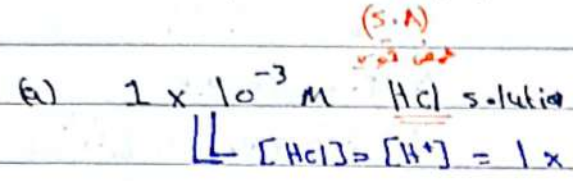 (S.A)
حمض قوي
(a) 1 x 10⁻³ M HCl solution
[HCl] = [H⁺] = 1 x